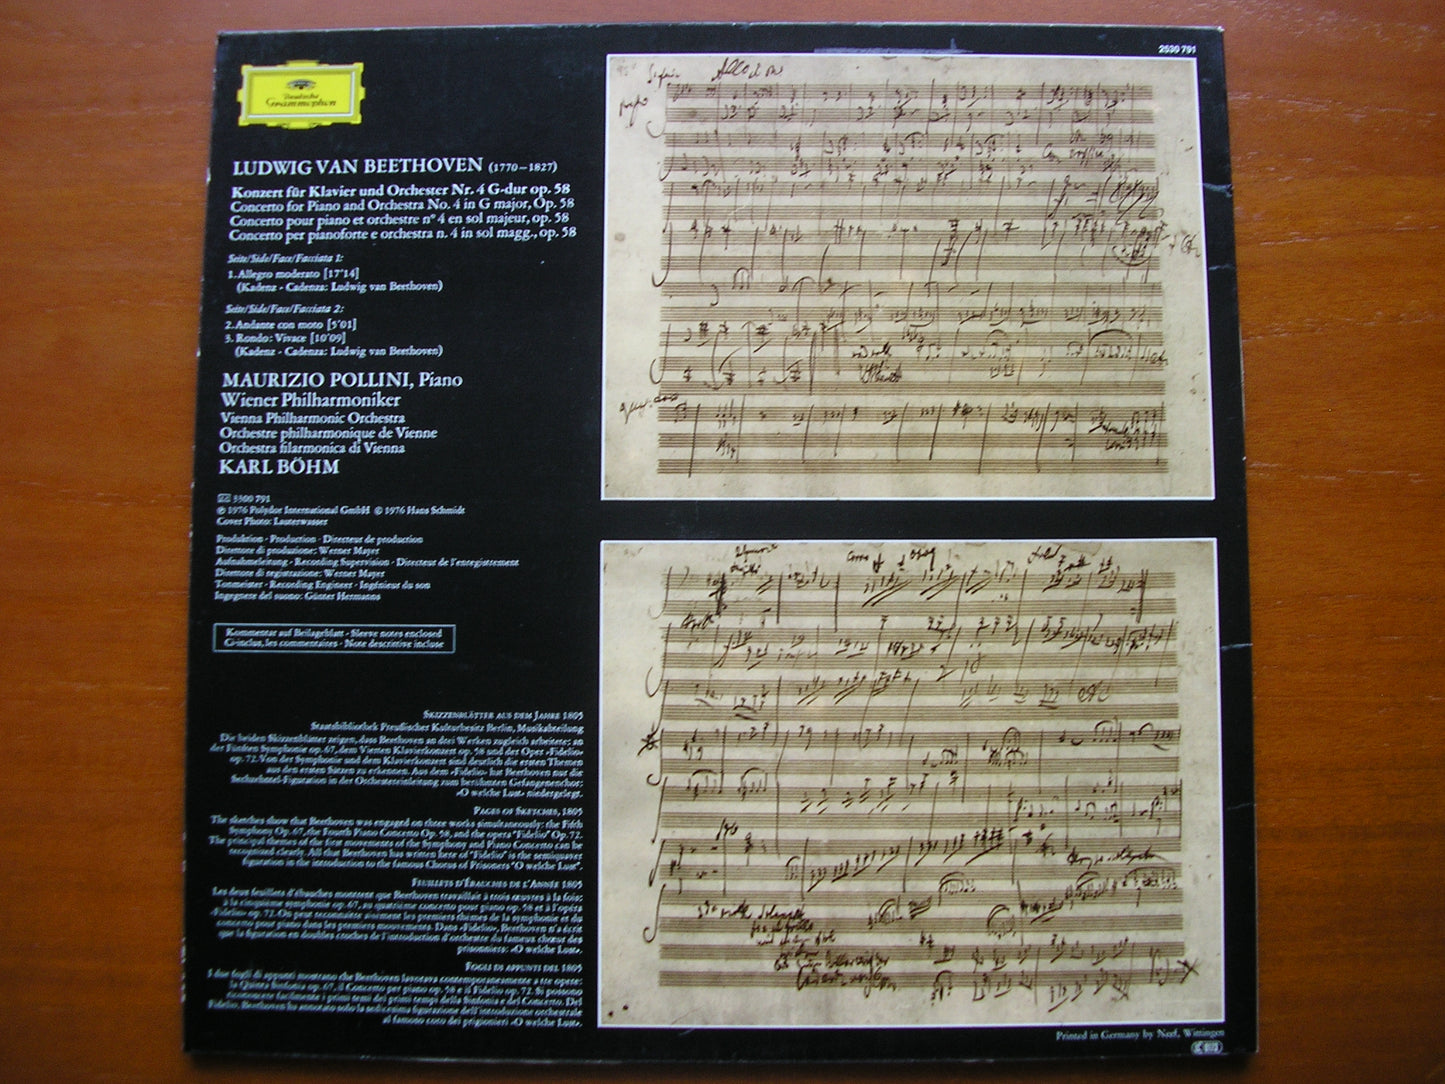 2530 791
Deutsche
Grammophon
LUDWIG VAN BEETHOVEN (1770–1827)
Konzert für Klavier und Orchester Nr. 4 G-dur op. 58
Concerto for Piano and Orchestra No. 4 in G major, Op. 58
Concerto pour piano et orchestre n° 4 en sol majeur, op. 58
Concerto per pianoforte e orchestra n. 4 in sol magg., op. 58
Seite/Side/Face/Facciata 1:
1. Allegro moderato [17'14]
(Kadenz - Cadenza: Ludwig van Beethoven)
Seite/Side/Face/Facciata 2:
2. Andante con moto [5'01]
3. Rondo: Vivace [10'09]
(Kadenz - Cadenza: Ludwig van Beethoven)
MAURIZIO POLLINI, Piano
Wiener Philharmoniker
Vienna Philharmonic Orchestra
Orchestre philharmonique de Vienne
Orchestra filarmonica di Vienna
KARL BÖHM
3300 791
℗ 1976 Polydor International GmbH © 1976 Hans Schmidt
Cover Photo: Lauterwasser
Produktion · Production · Directeur de production
Direttore di produzione: Werner Mayer
Aufnahmeleitung · Recording Supervision · Directeur de l'enregistrement
Direttore di registrazione: Werner Mayer
Tonmeister · Recording Engineer · Ingénieur du son
Ingegnere del suono: Günter Hermanns
Kommentar auf Beilageblatt · Sleeve notes enclosed
Ci-inclus, les commentaires · Note descrittive incluse
SKIZZENBLÄTTER AUS DEM JAHRE 1805
Staatsbibliothek Preußischer Kulturbesitz Berlin, Musikabteilung
Die beiden Skizzenblätter zeigen, dass Beethoven an drei Werken zugleich arbeitete: an
der Fünften Symphonie op. 67, dem Vierten Klavierkonzert op. 58 und der Oper »Fidelio«
op. 72. Von der Symphonie und dem Klavierkonzert sind deutlich die ersten Themen
aus den ersten Sätzen zu erkennen. Aus dem »Fidelio« hat Beethoven nur die
Sechzehntel-Figuration in der Orchestereinleitung zum berühmten Gefangenenchor:
»O welche Lust« niedergelegt.
PAGES OF SKETCHES, 1805
The sketches show that Beethoven was engaged on three works simultaneously: the Fifth
Symphony Op. 67, the Fourth Piano Concerto Op. 58, and the opera "Fidelio" Op. 72.
The principal themes of the first movements of the Symphony and Piano Concerto can be
recognized clearly. All that Beethoven has written here of "Fidelio" is the semiquaver
figuration in the introduction to the famous Chorus of Prisoners "O welche Lust".
FEUILLETS D'ÉBAUCHES DE L'ANNÉE 1805
Les deux feuillets d'ébauches montrent que Beethoven travaillait à trois œuvres à la fois:
à la cinquième symphonie op. 67, au quatrième concerto pour piano op. 58 et à l'opéra
»Fidelio« op. 72. On peut reconnaître aisément les premiers thèmes de la symphonie et du
concerto pour piano dans les premiers mouvements. Dans »Fidelio«, Beethoven n'a écrit
que la figuration en doubles croches de l'introduction d'orchestre du fameux chœur des
prisonniers: »O welche Lust«.
FOGLI DI APPUNTI DEL 1805
I due fogli di appunti mostrano che Beethoven lavorava contemporaneamente a tre opere:
la Quinta Sinfonia op. 67, il Concerto per piano op. 58 e il Fidelio op. 72. Si possono
riconoscere facilmente i primi temi dei primi tempi della Sinfonia e del Concerto. Del
Fidelio, Beethoven ha annotato solo la sedicesima figurazione dell'introduzione orchestrale
al famoso coro dei prigionieri »O welche Lust«.
Printed in Germany by Neef, Wittingen